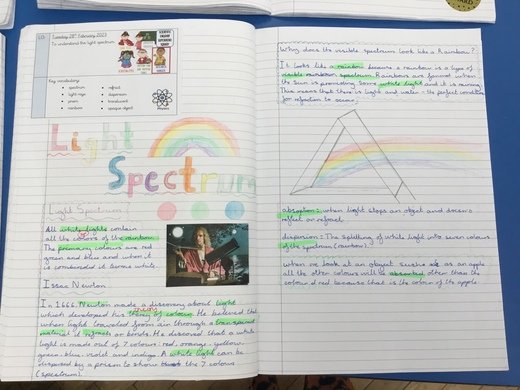 LO:
Tuesday 28th February 2023
To understand the light spectrum.
Key vocabulary:
spectrum
light rays
prism
rainbow
refract
dispersion
translucent
opaque object
Physics
Light
Spectrum
Light Spectrum:
All white lights contain
all the colours of the rainbow.
The primary colours are red
green and blue and when it
is combined it turns white.
Issac Newton
In 1666, Newton made a discovery about light
which developed his theory of colour. He believed that
when light traveled from air through a transparent
material it refracts or bends. He discoved that a white
light is made out of 7 colours: red, orange, yellow,
green, blue, violet and indigo. A white light can be
dispersed by a prism to show the 7 colours
(spectrum).
Why does the visible spectrum look like a Rainbow?
It looks like a rainbow because a rainbow is a type of
visible spectrum. Rainbows are formed when
the sun is providing some white light and it is raining.
This means that there is light and water - the perfect condition
for refraction to occur.
absorption: when light stops an object and doesn't
reflect or refract.
dispersion = The splitting of white light into seven colours
of the spectrum (rainbow).
when we look at an object such as an apple
all the other colours will be absorbed other than the
colour red because that is the colour of its apple